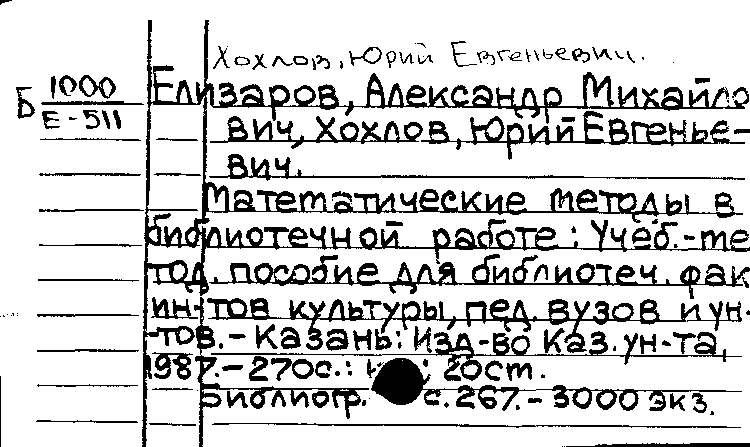 Хохлов, Юрий Евгеньевич.
Б 1000
Е-511
Елизаров, Александр Михайло
вич, Хохлов, Юрий Евгенье-
вич.
Математические методы в
библиотечной работе: Учеб.-ме
тод. пособие для библиотеч. фак
ин-тов культуры, пед. вузов и ун-
-тов. - Казань: Изд-во Каз. ун-та,
1987. - 270с.: 20см.
Библиогр. с. 267. - 3000 экз.